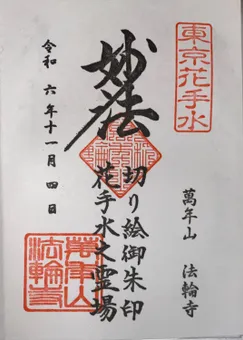 東京花手水
萬年山 法輪寺
妙法
切り絵御朱印
花手水之霊場
令和 六年十一月 四日
萬年山
法輪寺